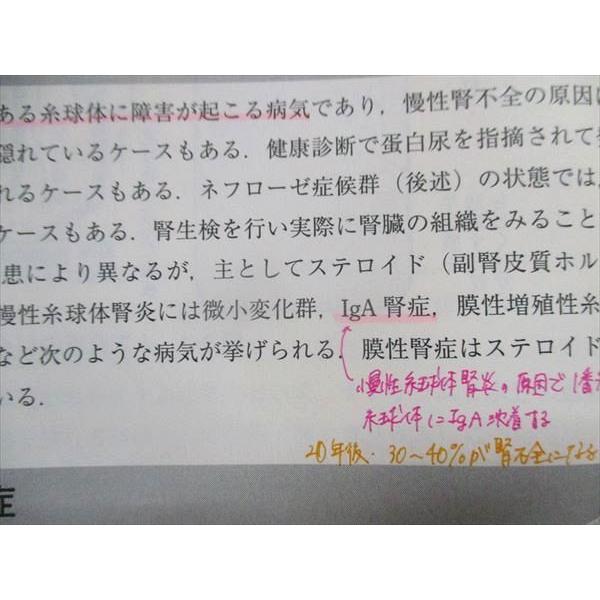 ある糸球体に障害が起こる病気であり，慢性腎不全の原因に
隠れているケースもある．健康診断で蛋白尿を指摘されて
れるケースもある．ネフローゼ症候群（後述）の状態では，
ケースもある．腎生検を行い実際に腎臓の組織をみること
患により異なるが，主としてステロイド（副腎皮質ホル
慢性糸球体腎炎には微小変化群，IgA 腎症，膜性増殖性糸
など次のような病気が挙げられる．膜性腎症はステロイド
いる．
慢性糸球体腎炎の原因で1番
糸球体にIgA沈着する
20年後・30～40%が腎不全になる
症